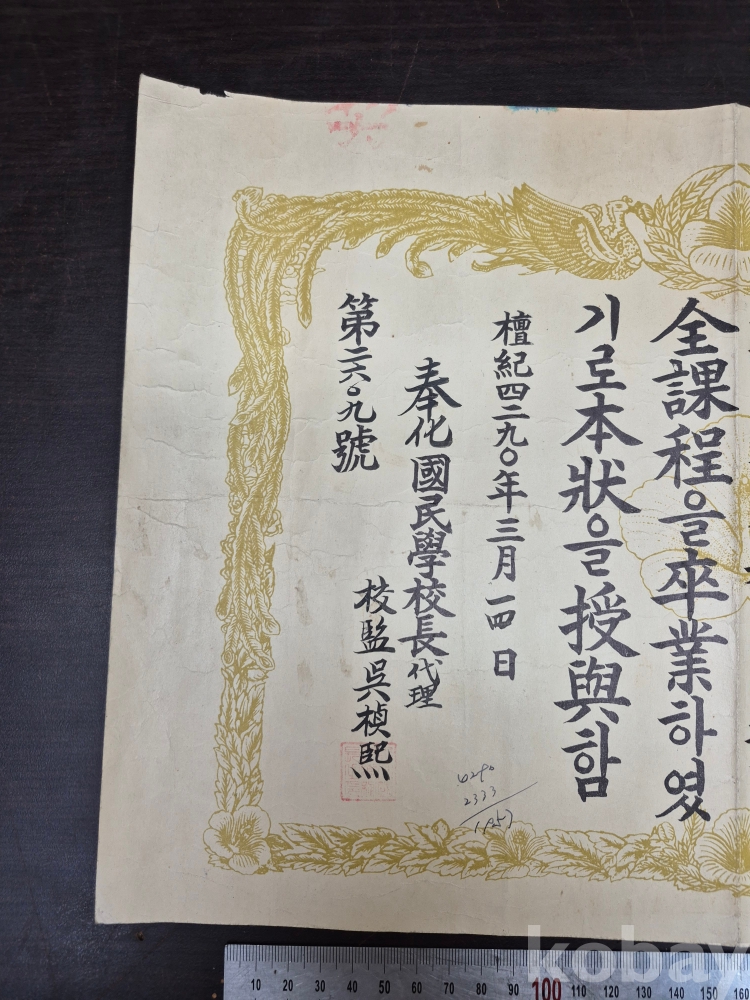 全課程을卒業하였
기로本狀을授與함
檀紀四二九〇年三月一四日
奉化國民學校長代理
校監吳楨熙
第二六〇九號
4290
2333
1957
10 20 30 40 50 60 70 80 90 100 110 120 130 140 150 160
kobay